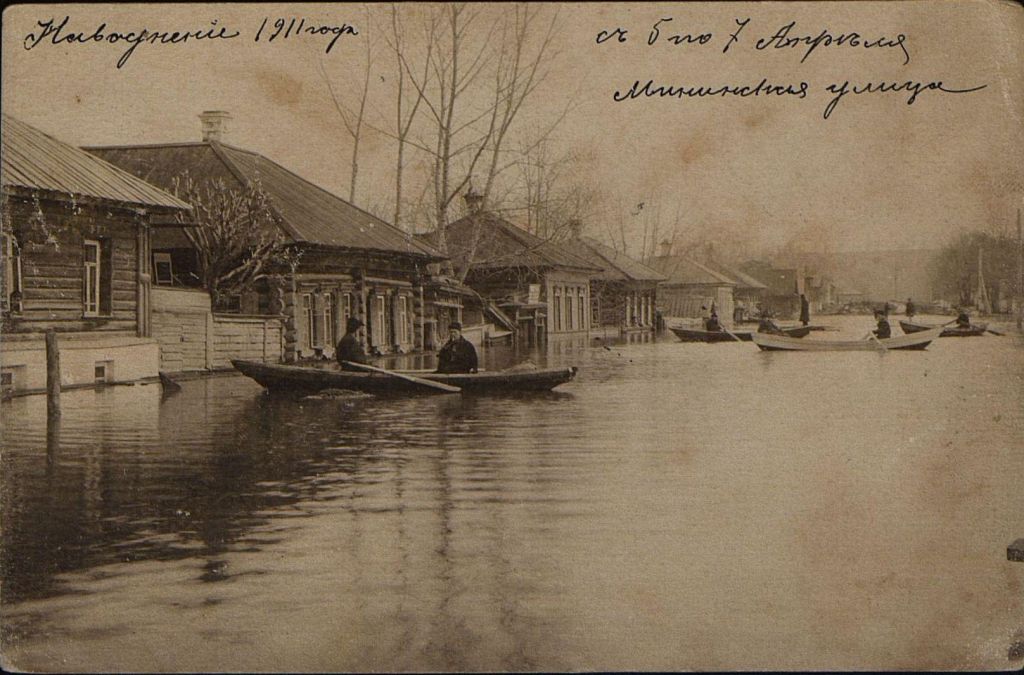 Наводненіе 1911 года
съ 5 по 7 Апрѣля
Мининская улица